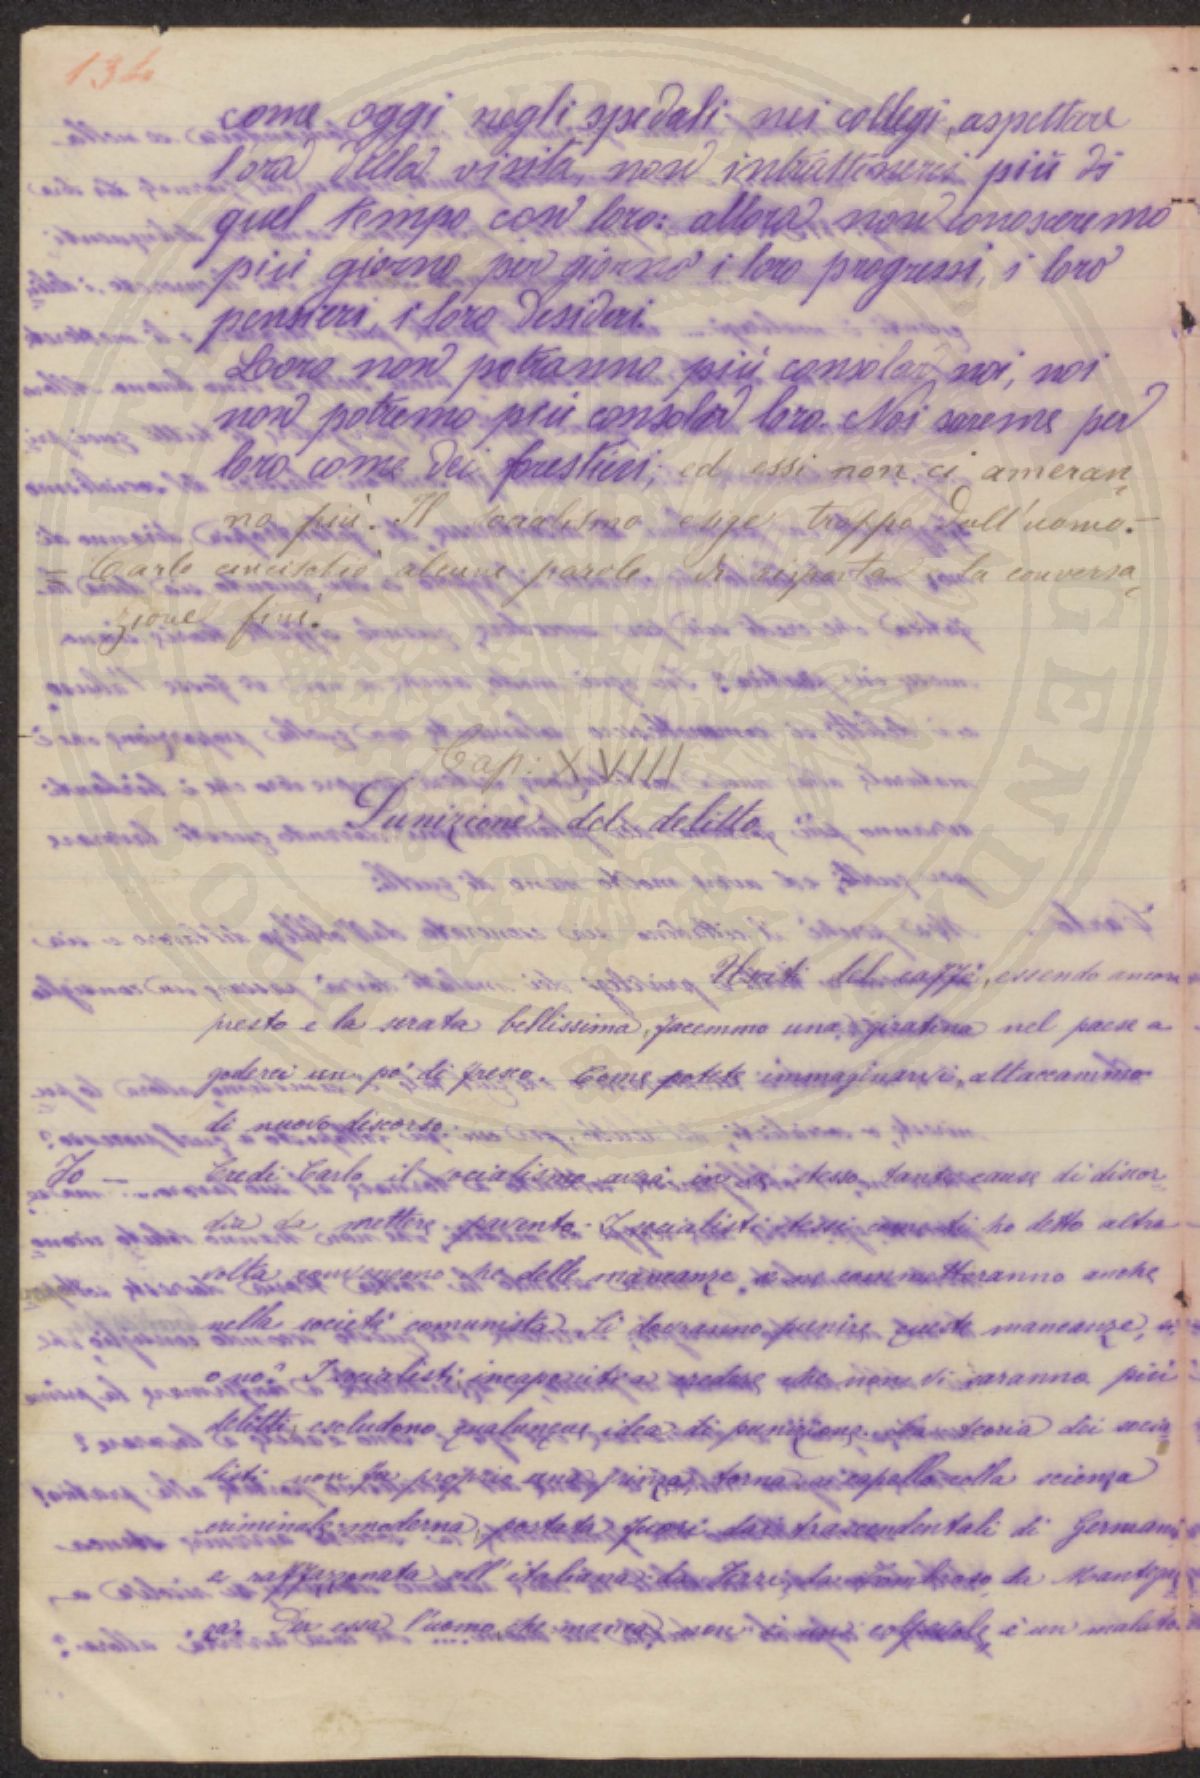 134
come oggi negli spedali nei collegi, aspettare
l'ora della visita, non intrattenerci più di
quel tempo con loro: allora non conosceremo
più giorno per giorno i loro progressi, i loro
pensieri, i loro desideri.
Loro non potranno più consolar noi, noi
non potremo più consolar loro. Noi saremo per
loro come dei forestieri, ed essi non ci ameran-
no più. Il socialismo esige troppo dall'uomo. -
= Carlo cincischiò alcune parole di risposta e la conversa-
zione finì.
Cap: XVIII
Punizione del delitto
Usciti del caffè, essendo ancora
presto e la serata bellissima, facemmo una giratina nel paese a
goderci un po' di fresco. Come potete immaginarvi, attaccammo
di nuovo discorso.
Io - Credi Carlo il socialismo avrà in se stesso tante cause di discor-
die da mettere spavento. I socialisti stessi, come ti ho detto altra
volta, convengono che delle mancanze se ne commetteranno anche
nella società comunista. Si dovranno punire queste mancanze, sì
o no? I socialisti, incaponiti a credere che non vi saranno più
delitti, escludono qualunque idea di punizione. La teoria dei socia-
listi non fa proprio una grinza, torna a capello colla scienza
criminale moderna, portata fuori dai trascendentali di Germania
e raffazzonata all'italiana da Ferri, da Lombroso, da Mantegaz-
za. Per essa l'uomo che manca non è un colpevole, è un malato.